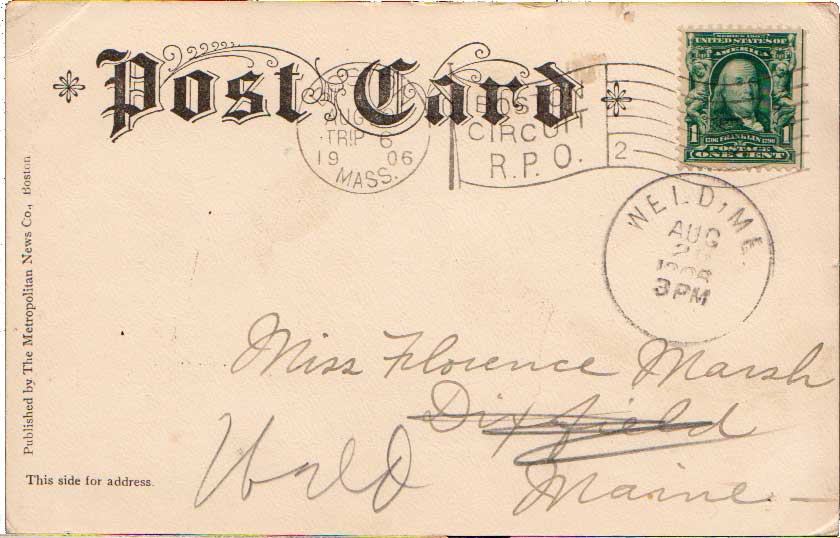 Post Card
AUG
TRIP 6
19 06
MASS.
BOSTON
CIRCUIT
R.P.O.
2
SERIES 1902
UNITED STATES OF
AMERICA
1 1706 FRANKLIN 1790 1
POSTAGE
ONE CENT
WELD, ME.
AUG
1906
3 PM
Published by The Metropolitan News Co., Boston.
Miss Florence Marsh
Dixfield
Weld
Maine
This side for address.